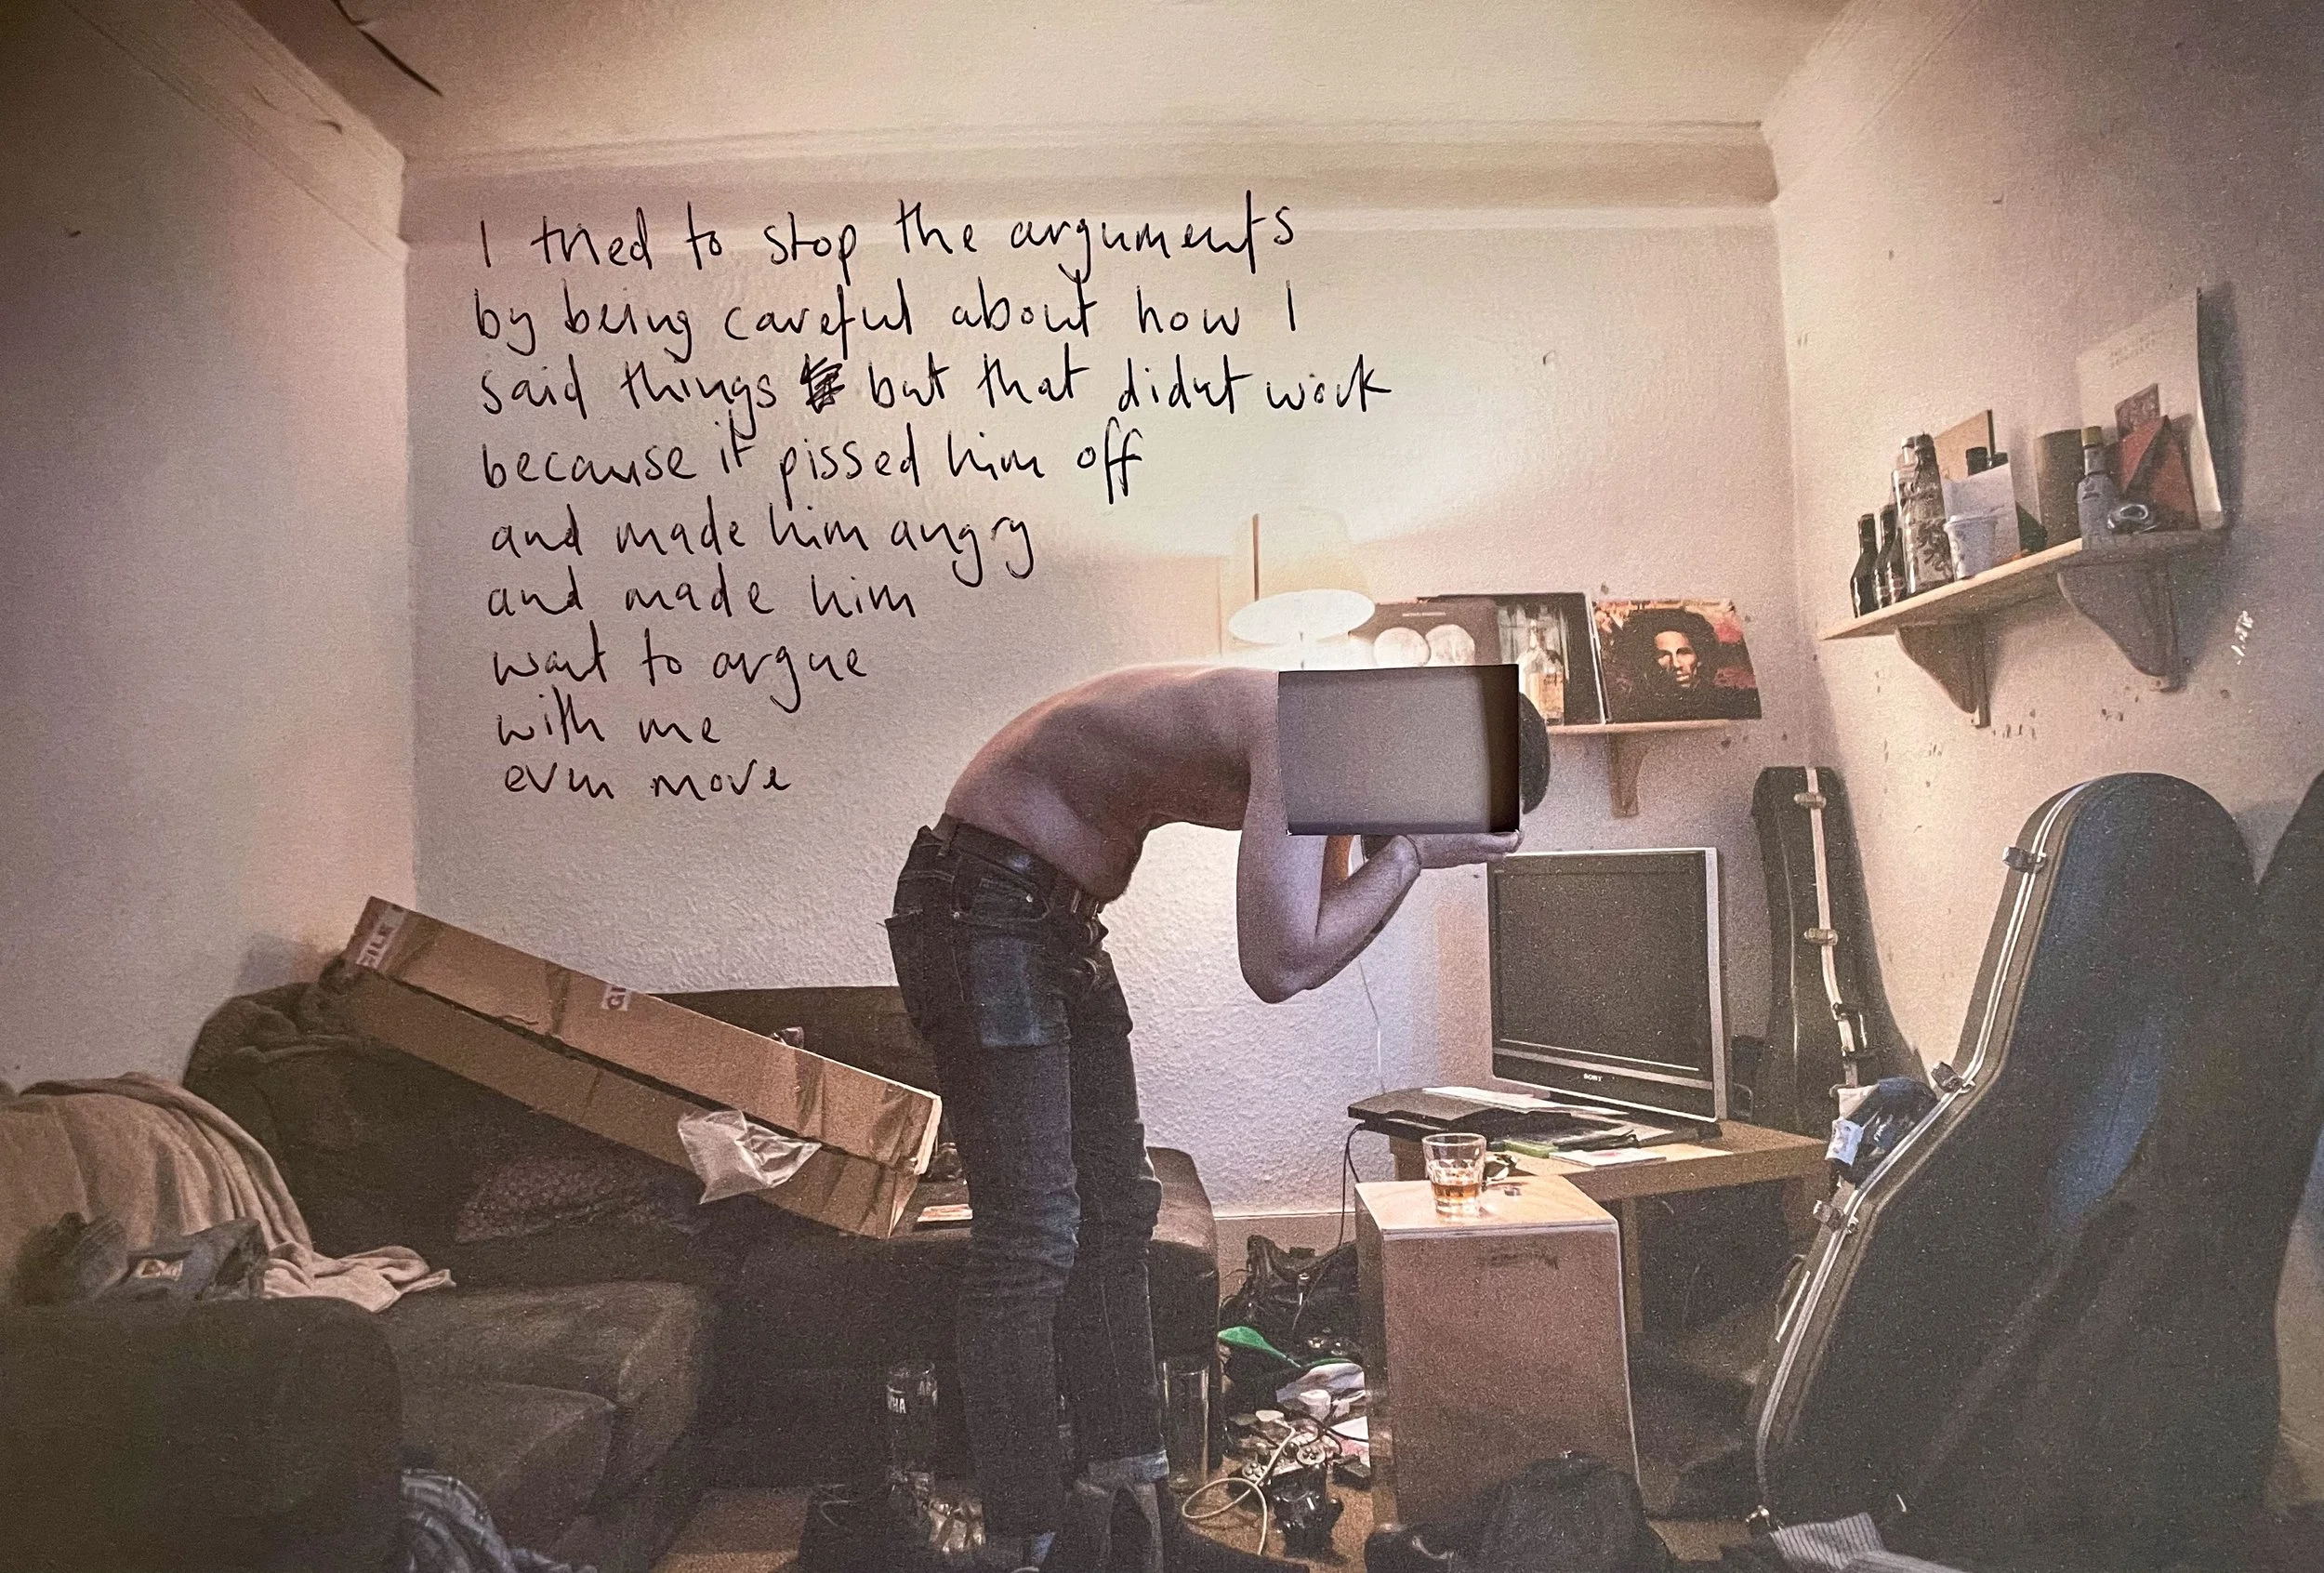 I tried to stop the arguments
by being careful about how I
said things but that didnt work
because it pissed him off
and made him angry
and made him
want to argue
with me
even more
SONY